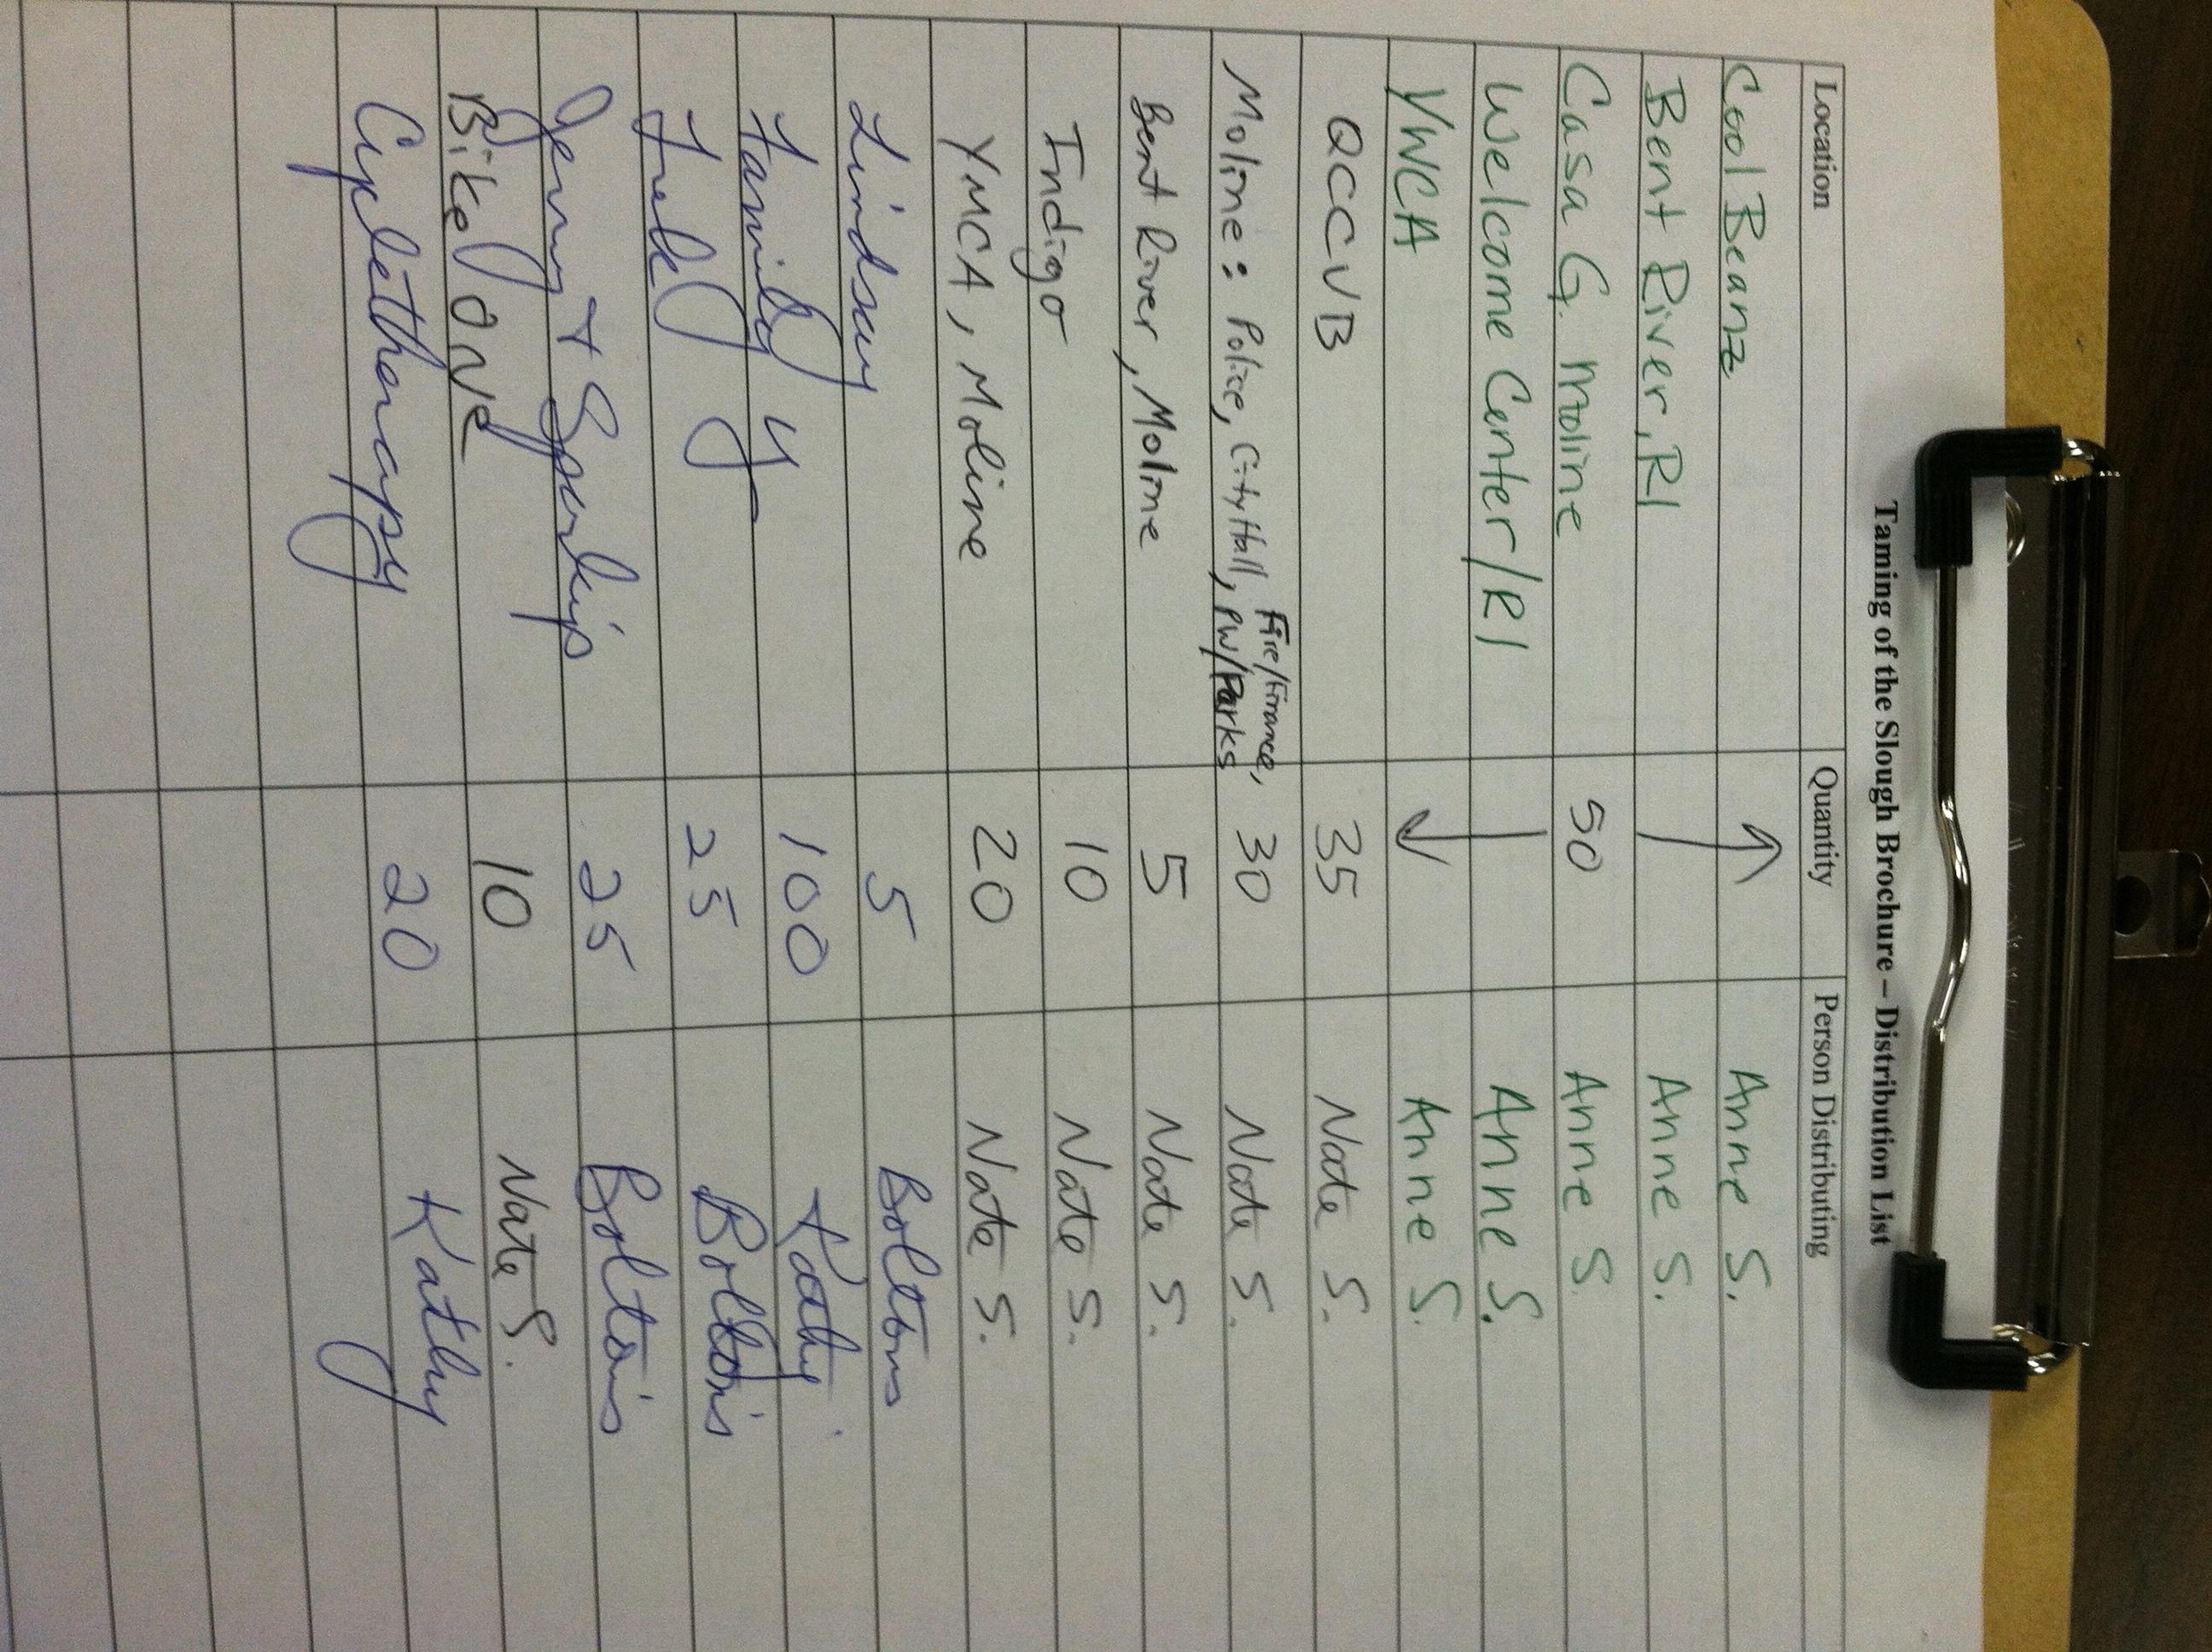 Taming of the Slough Brochure – Distribution List
Location Quantity Person Distributing
Cool Beanz ↑ Anne S.
Bent River, RI Anne S.
Casa G. Moline 50 Anne S.
Welcome Center/RI Anne S.
YWCA ↓ Anne S.
QCCVB 35 Nate S.
Moline: Police, City Hall, Fire/Finance, PW/Parks 30 Nate S.
Bent River, Moline 5 Nate S.
Indigo 10 Nate S.
YMCA, Moline 20 Nate S.
Lindsay 5 Boltons
Family Y 100 Kathy
25 Bolton's
Jerry & 25 Bolton's
Bike One 10 Nate S.
Cycletherapy 20 Kathy